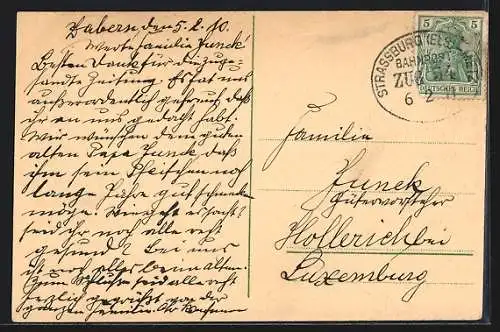 Zabern, den 5.2.10.
Werte Familie Funck!
Besten Dank für die zuge-
sandte Zeitung. Es hat uns
außerordentlich gefreut, daß
ihr an uns gedacht habt.
Wir wünschen dem guten
alten Papa Funck, daß
ihm sein Pfeifchen noch
lange Jahre gut schmecken
möge. Wie geht es sonst?
seid ihr noch alle recht
gesund? Bei uns
ist noch alles beim alten.
Zum Schluße seid alle recht
herzlich gegrüßt von der
ganzen Familie
5 5
DEUTSCHES REICH
STRASSBURG (ELS)
BAHNPOST
ZUG
6 2 11
Familie
Funck
Gütervorsteher
Hollerich bei
Luxemburg